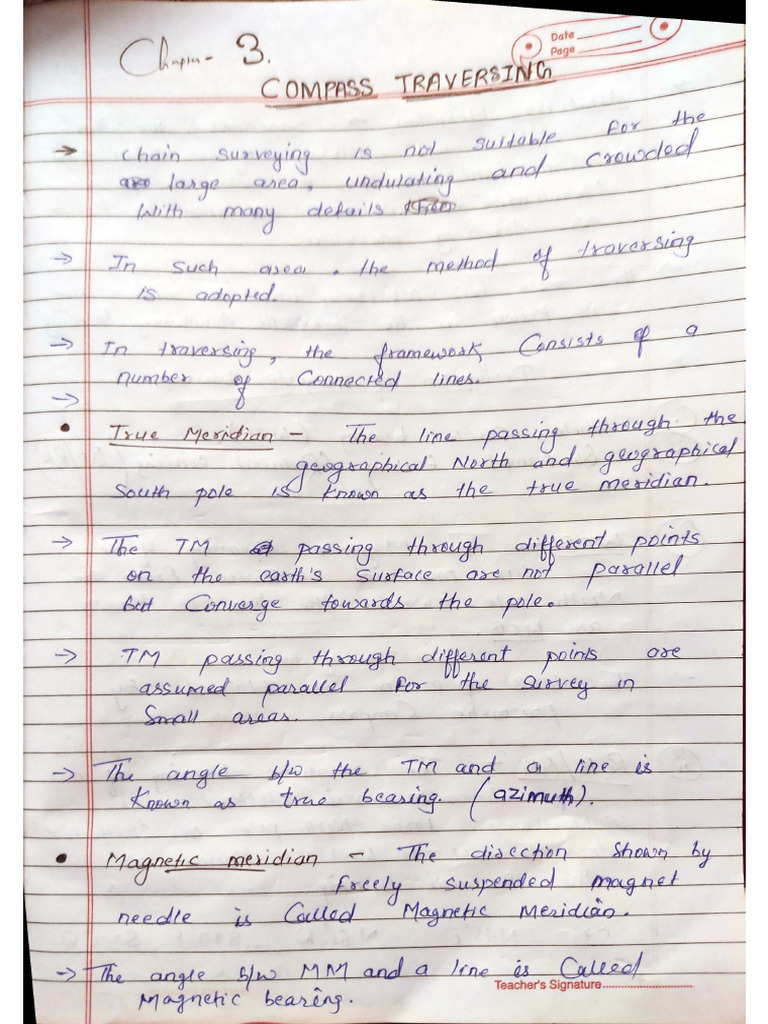 Chapter - 3.
Date
Page
COMPASS TRAVERSING
→ Chain surveying is not suitable for the
large area, undulating and crowded
With many details
→ In such area, the method of traversing
is adopted.
→ In traversing, the framework Consists of a
number of Connected lines.
→
• True Meridian - The line passing through the
geographical North and geographical
South pole is known as the true meridian.
→ The TM passing through different points
on the earth's surface are not parallel
but Converge towards the pole.
→ TM passing through different points are
assumed parallel for the survey in
Small areas.
→ The angle b/w the TM and a line is
known as true bearing. (azimuth).
• Magnetic meridian - The direction shown by
freely suspended magnet
needle is Called Magnetic Meridian.
→ The angle b/w MM and a line is Called
Magnetic bearing.
Teacher's Signature